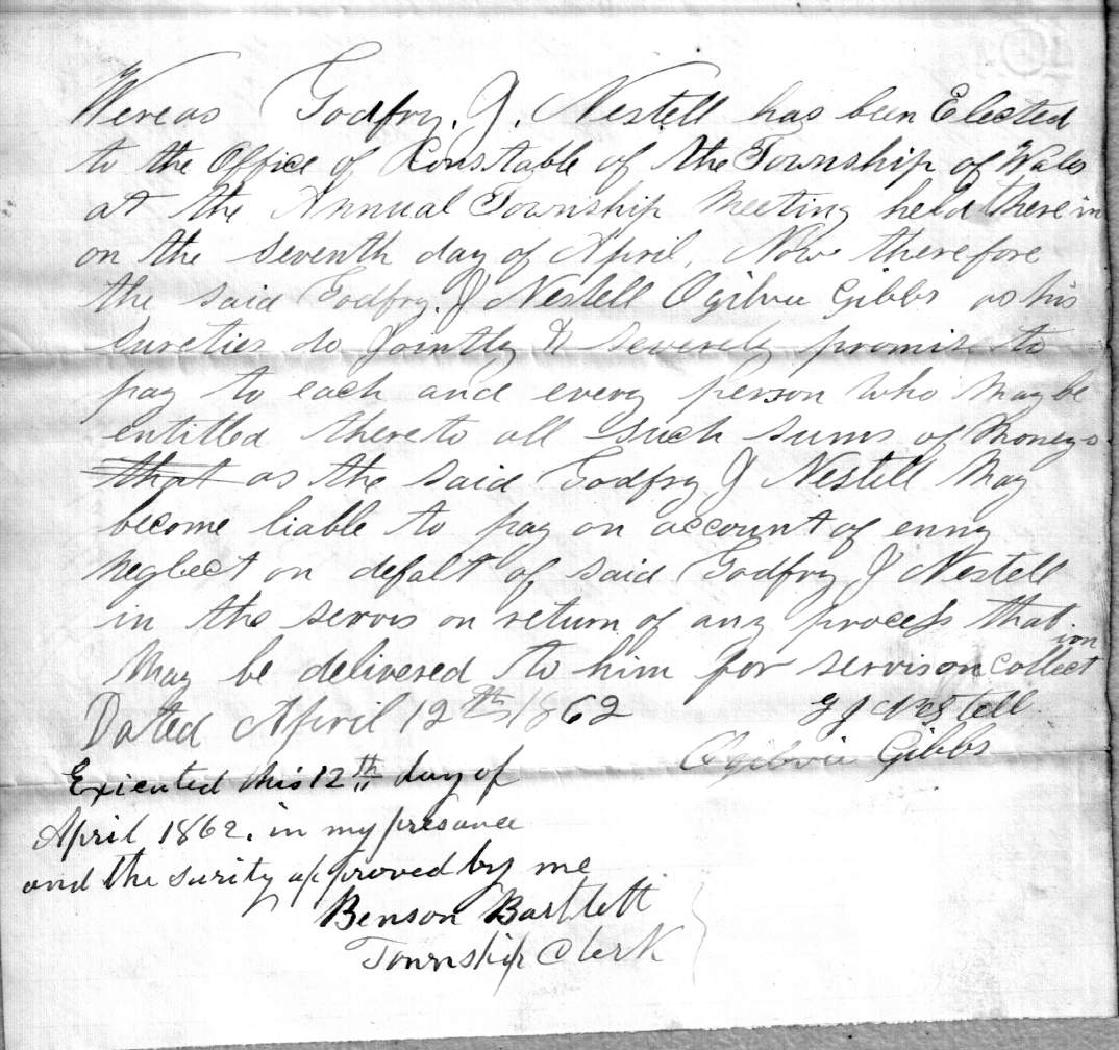 Wereas Godfry. J. Nestell has been Elected
to the Office of Constable of the Township of Wales
at the Annual Township Meeting held there in
on the seventh day of April, Now therefore
the said Godfry. J Nestell Ogilvie Gibbs as his
sureties do Jointly & severely promis to
pay to each and every person who may be
entitled thereto all such sums of money
that as the said Godfry J Nestell may
become liable to pay on account of enny
neglect on defalt of said Godfry J Nestell
in the servis on return of any process that
may be delivered to him for servis on collection
Dated April 12th 1862 G J Nestell
Ogilvie Gibbs
Exicuted this 12th day of
April 1862. in my presance
and the surity approved by me
Benson Bartlett
Township Clerk